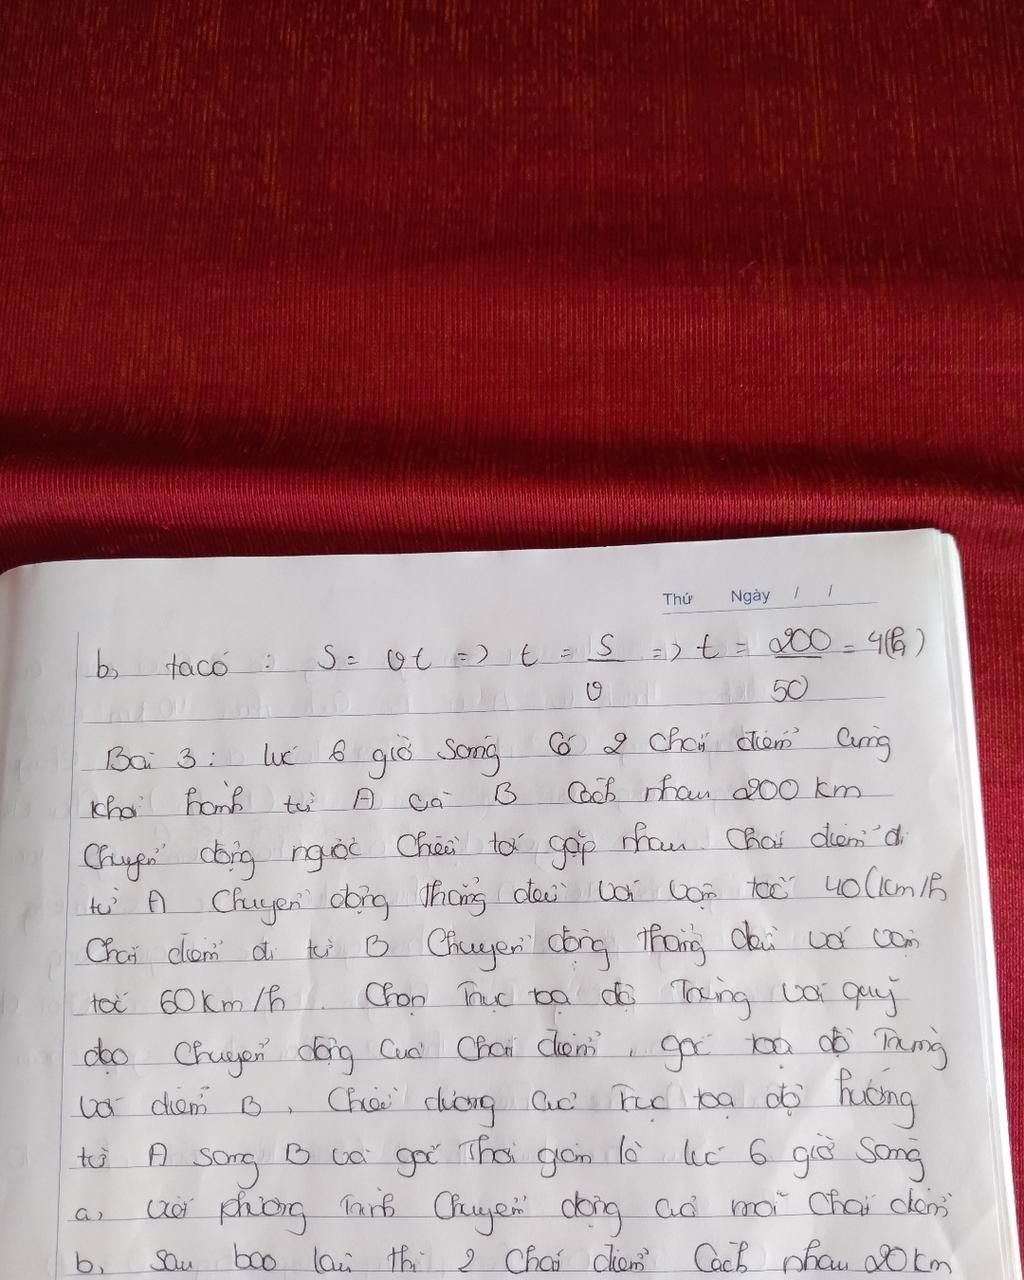 Thứ Ngày / /
b, ta có : S = vt => t = S/v => t = 200/50 = 4(h)
Bài 3 : lúc 6 giờ sáng có 2 chất điểm cùng
khởi hành từ A và B cách nhau 200 km
chuyển động ngược chiều tới gặp nhau. Chất điểm đi
từ A chuyển động thẳng đều với vận tốc 40 (km/h
Chất điểm đi từ B chuyển động thẳng đều với vận
tốc 60 km/h. Chọn trục toạ độ trùng với quỹ
đạo chuyển động của chất điểm, gốc toạ độ trùng
với điểm B, chiều dương của trục toạ độ hướng
từ A sang B và gốc thời gian là lúc 6 giờ sáng
a, viết phương trình chuyển động của mỗi chất điểm
b, sau bao lâu thì 2 chất điểm cách nhau 20 km